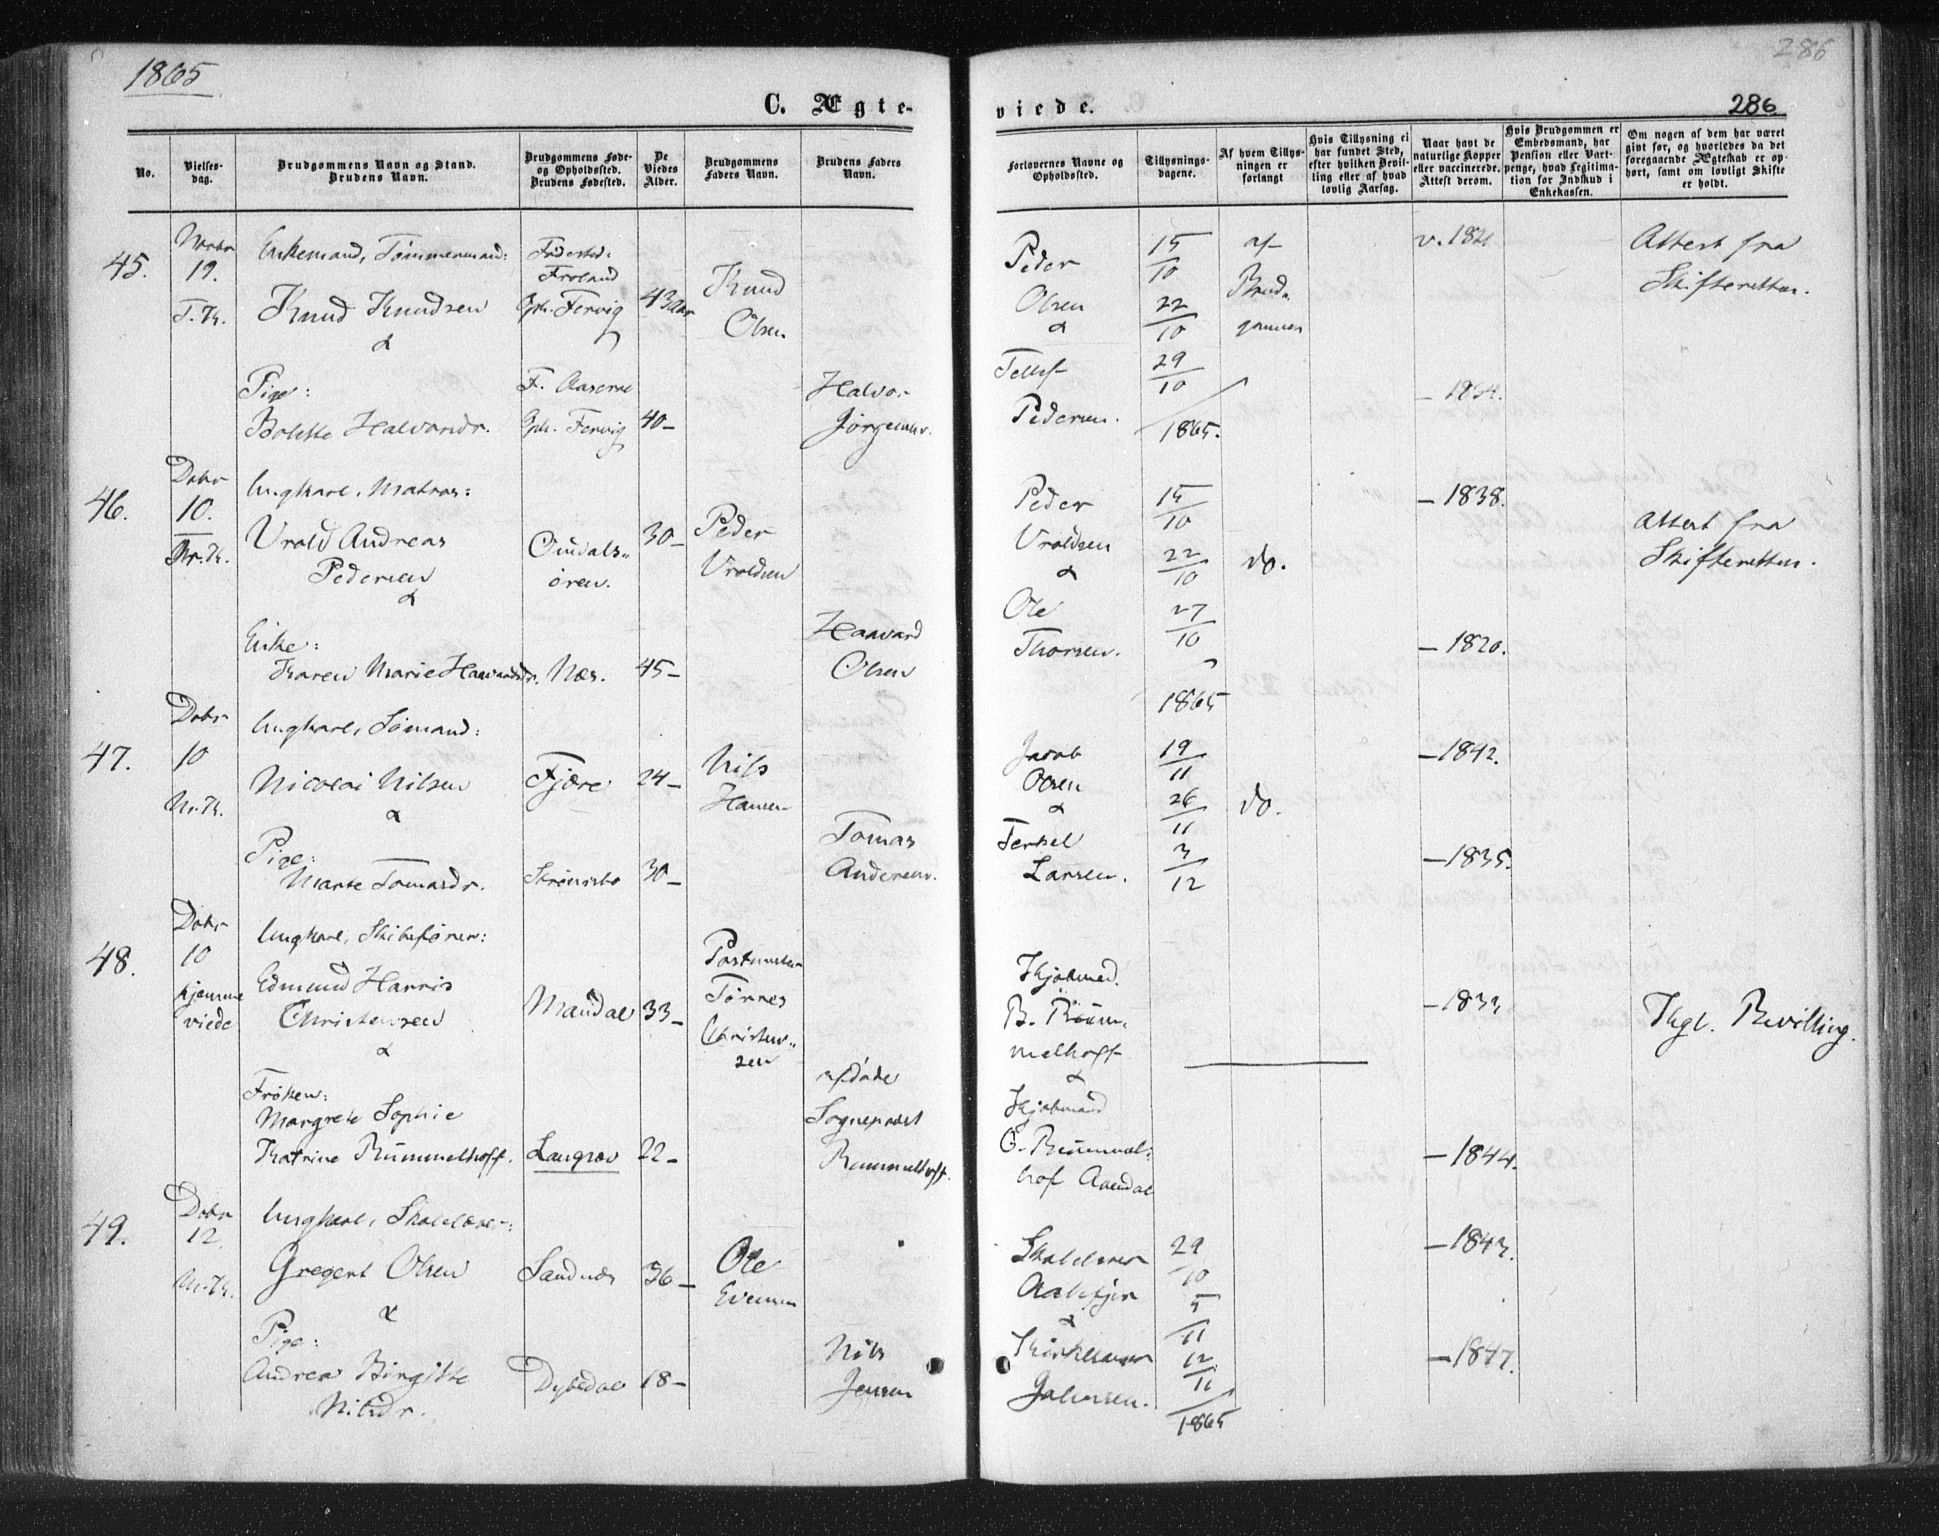 1865
286
C. Ægte-
viede.
286
No.
Vielses-
dag.
Brudgommens Navn og Stand.
Brudens Navn.
Brudgommens Føde-
og Opholdssted.
Brudens Fødested.
De
Viedes
Alder.
Brudgommens
Faders Navn.
Brudens Faders
Navn.
Forlovernes Navne og
Opholdssted.
Tillysnings-
dagene.
Af hvem Tillys-
ningen er
forlangt
Hvis Tillysning ei
har fundet Sted,
efter hvilken Bevil-
ling eller af hvad
lovlig Aarsag.
Naar havt de
naturlige Kopper
eller vaccinerede.
Attest derom.
Hvis Brudgommen er
Embedsmand, har
Pension eller Vart-
penge, hvad Legitima-
tion for Indskud i
Enkekassen.
Om nogen af dem har været
gift før, og hvorledes da det
foregaaende Ægteskab er op-
hørt, samt om lovligt Skifte
er holdt.
45.
19.
Enkemand, Tømmermand:
Knud Knudsen
&
Pige:
Halvorsdr.
Froland
43 Aar
40-
Knud
Olsen
Halvor
Jørgensen.
Peder
Olsen
&
Tellef
Pedersen.
15/10
22/10
29/10
1865.
af
Brud-
gommen
Attest fra
Skifteretten.
46.
Dcbr
10.
Ungkarl, Matros:
Vrold Andreas
Pedersen
&
Enke:
Karen Marie Haavardsdr.
Omdals-
øren.
Næs.
30-
45-
Peder
Vroldsen
Haavard
Olsen
Peder
Vroldsen
&
Ole
Thorsen.
15/10
22/10
27/10
1865
do.
- 1838.
- 1820.
Attest fra
Skifteretten.
47.
Dcbr
10
Ungkarl, Sømand:
Nicolai Nilsen
&
Pige:
Marte Tomasdr.
Fjære
24-
30-
Nils
Hansen
Tomas
Andersen.
Jacob
Olsen
&
Terkel
Larsen.
19/11
26/11
3/12
do.
- 1842.
- 1835.
48.
Dcbr
10
hjemme
viede
Ungkarl, Skibsfører:
Edmund Harris
Christensen
&
Frøken:
Margrete Sophie
Katrine Rummelhoff.
Mandal
Langsæv
33-
22-
Postmester
Tørres
Christen-
sen
afdøde
Sogneprest
Rummelhoff.
Kjøbmand
B. Rum-
melhoff
&
Kjøbmand
G. Rummel-
hof Arendal
- 1833
- 1844.
Kgl. Bevilling.
49.
Dcbr
12.
Ungkarl, Skolelærer:
Gregert Olsen
&
Pige:
Andrea Birgitte
Nilsdr.
Sandnæs
Dybedal
36-
18-
Ole
Evensen
Nils
Jensen
Skolelærer
&
29/10
5/11
12/11
1865
- 1843.
- 1847.